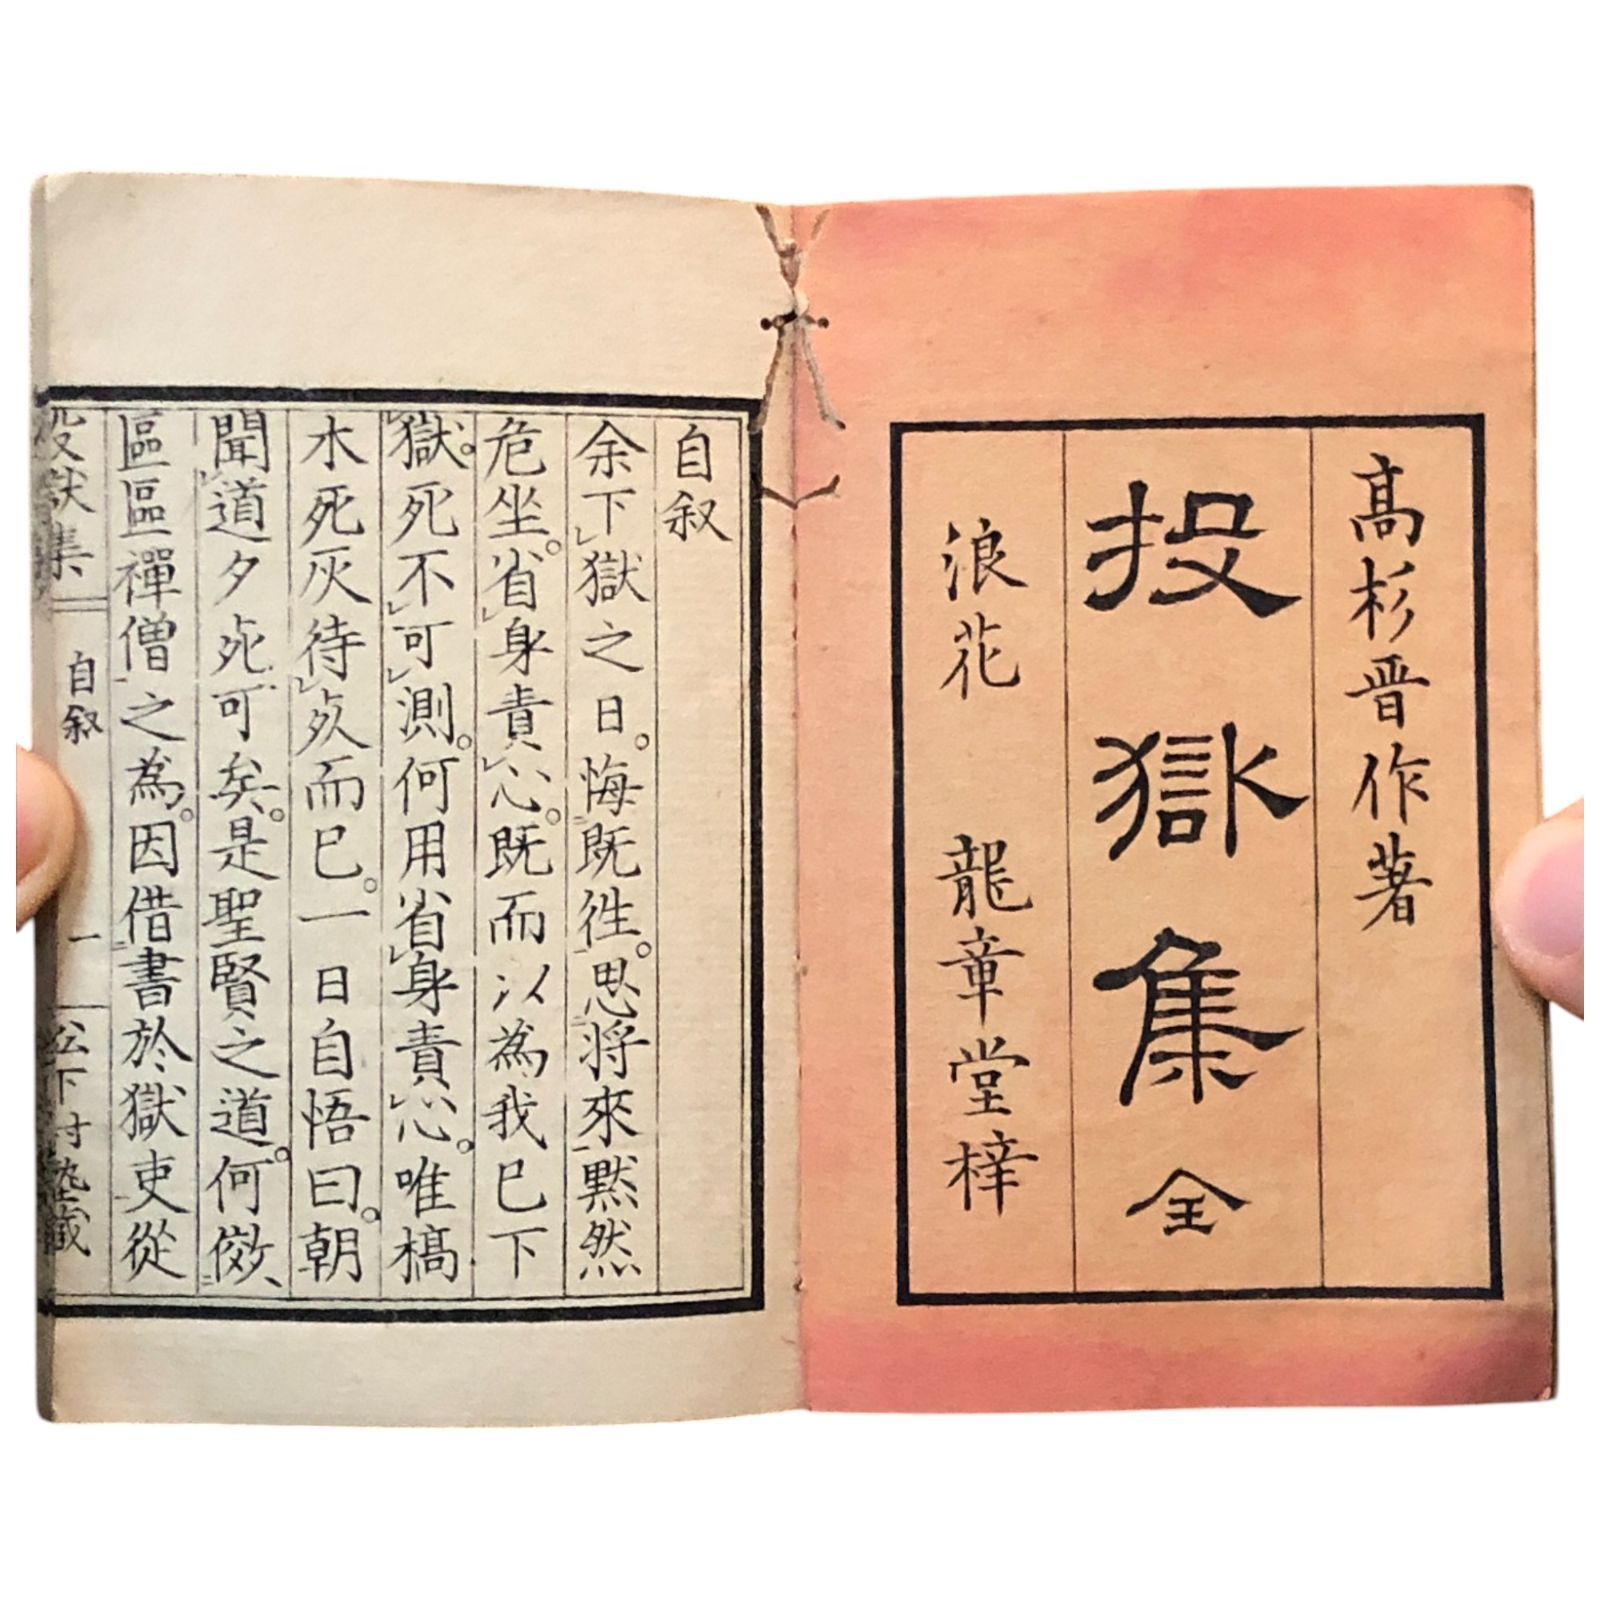 高杉晋作著
投獄集 全
浪花 龍章堂梓
自叙
余下獄之日。悔既徃。思将來默然
危坐。省身責心。既而以為我已下
獄。死不可測。何用省身責心。唯槁
木死灰待死而已。一日自悟曰。朝
聞道夕死可矣。是聖賢之道。何傚
區區禪僧之為。因借書於獄吏從
投獄集 自叙 一